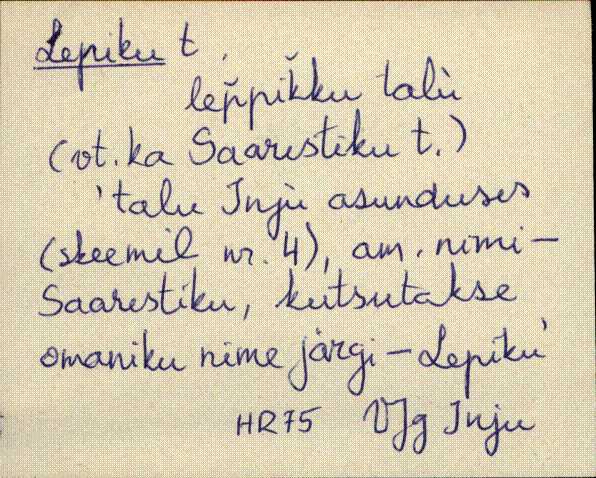 Lepiku t.
lep̆pik̆ku talù
(vt. ka Saarestiku t.)
'talu Inju asunduses
(skeemil nr. 4), am. nimi –
Saarestiku, kutsutakse
omaniku nime järgi – Lepiku'
HR75 VJg Inju